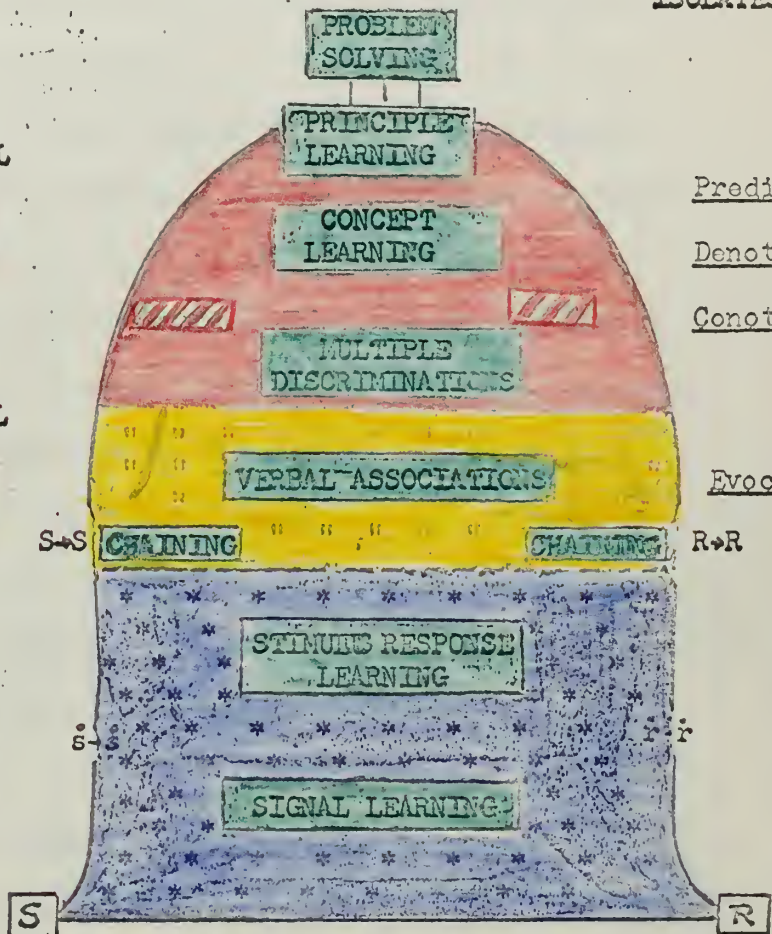 PROBLEM
SOLVING
PRINCIPLE
LEARNING
CONCEPT
LEARNING
MULTIPLE
DISCRIMINATIONS
VERBAL ASSOCIATIONS
S→S CHAINING CHAINING R→R
STIMULUS RESPONSE
LEARNING
SIGNAL LEARNING
S R